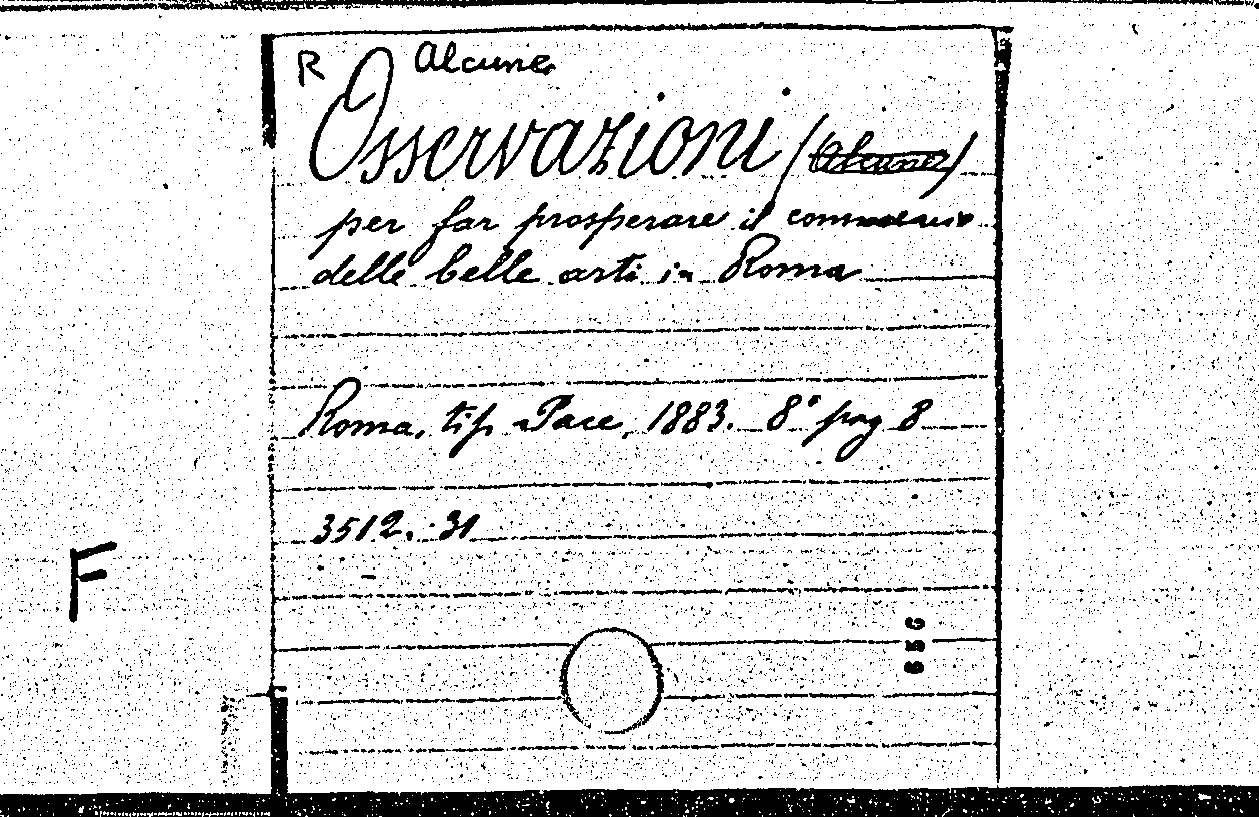 R Alcune
Osservazioni (Alcune)
per far prosperare il commercio
delle belle arti in Roma
Roma, tip. Pace, 1883. 8° pag 8
3512. 31
F